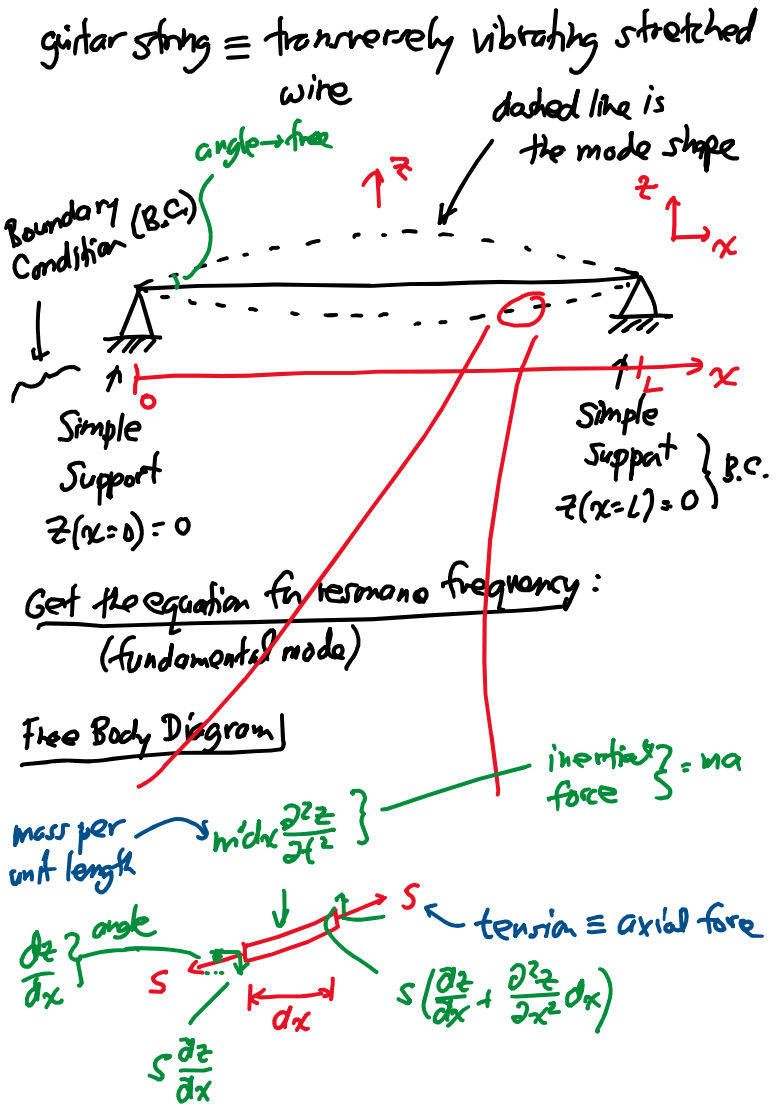 guitar string ≡ transversely vibrating stretched
wire
dashed line is
the mode shape
angle→free
z
z
x
Boundary
Condition (B.C.)
0
L
x
Simple
Support
z(x=0)=0
Simple
Support
z(x=L)=0
B.C.
Get the equation for resonanc frequency:
(fundamental mode)
Free Body Diagram
inertial
force
= ma
mass per
unit length
m'dx ∂²z/∂t²
S
tension ≡ axial force
dz/dx
angle
S
dx
S(dz/dx + ∂²z/∂x² dx)
S dz/dx